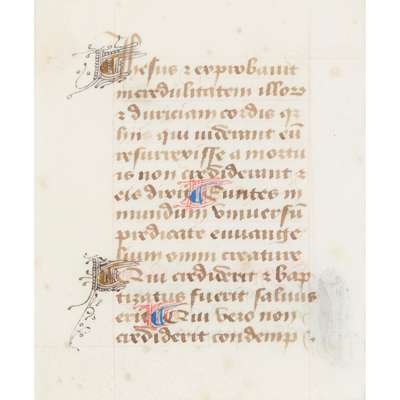 Ihesus ⁊ exprobavit
incredulitatem illoꝝ
⁊ duriciam cordis qꝛ
hiis qui viderant eū
resurrexisse a mortu
is non crediderant ⁊
eis dixit Euntes in
mundum vniversū
predicate euuange
lium omni creature
Qui crediderit ⁊ bap
tizatus fuerit salvus
erit Qui vero non
crediderit condemp